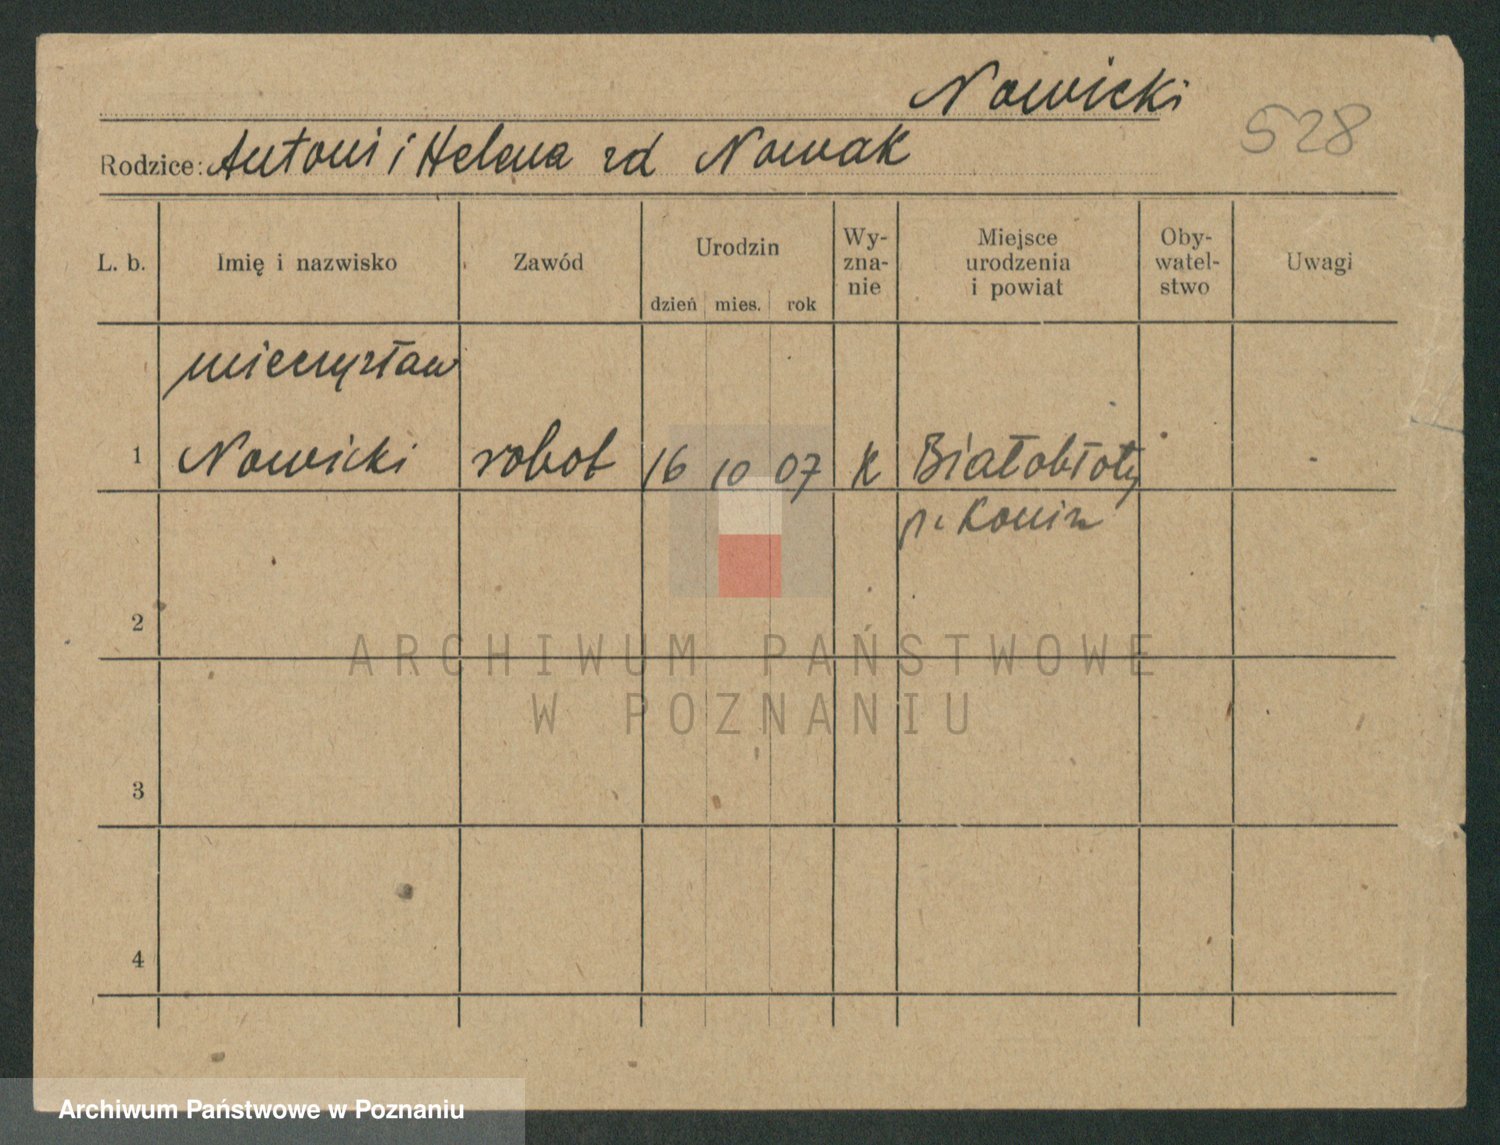 Nowicki
528
Rodzice: Antoni i Helena zd Nowak
L. b.
Imię i nazwisko
Zawód
Urodzin
dzień mies. rok
Wy-
zna-
nie
Miejsce
urodzenia
i powiat
Oby-
watel-
stwo
Uwagi
Mieczysław
1 Nowicki robot 16 10 07 K Białobłoty
p. Konin
2
ARCHIWUM PAŃSTWOWE
W POZNANIU
3
4
Archiwum Państwowe w Poznaniu